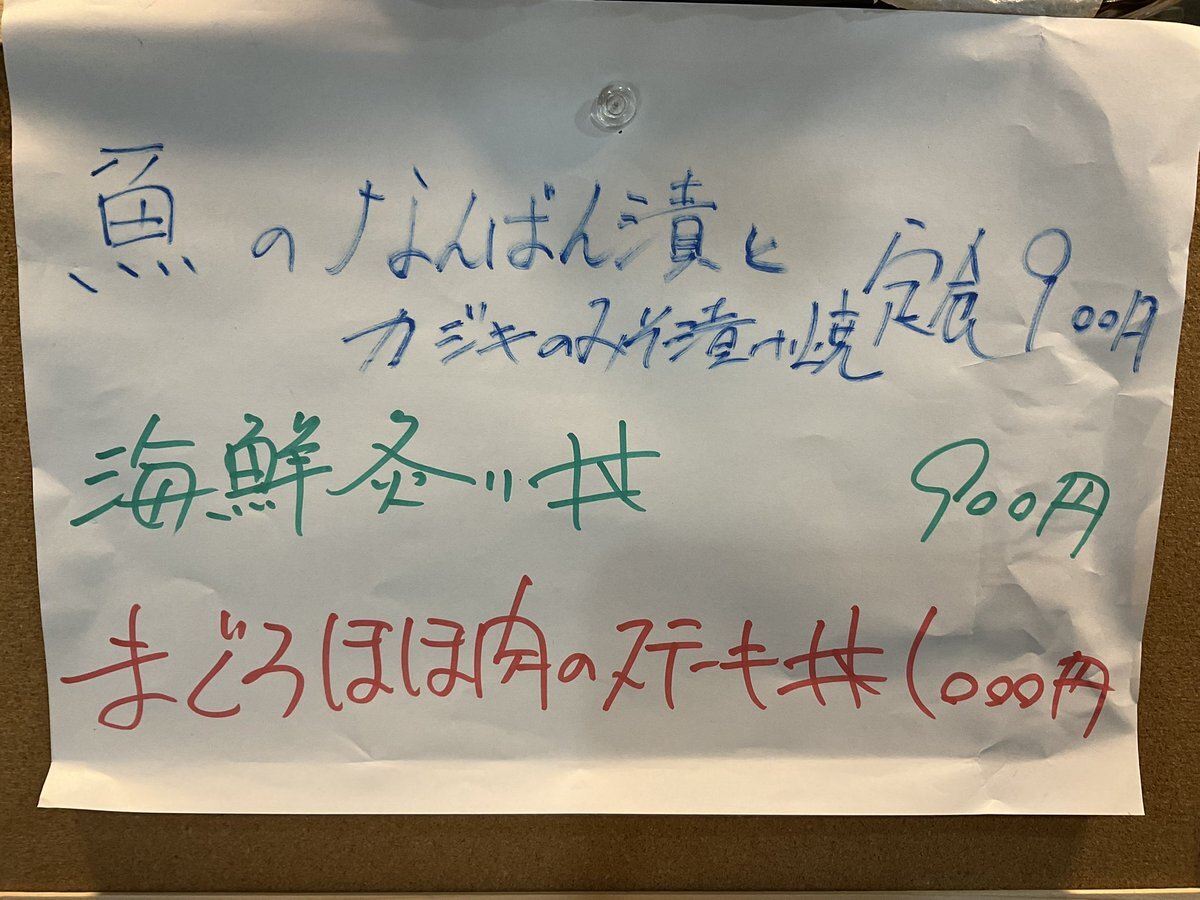 魚のなんばん漬と
カジキのみそ漬け焼 定食 900円
海鮮炙り丼 900円
まぐろほほ肉のステーキ丼 1000円